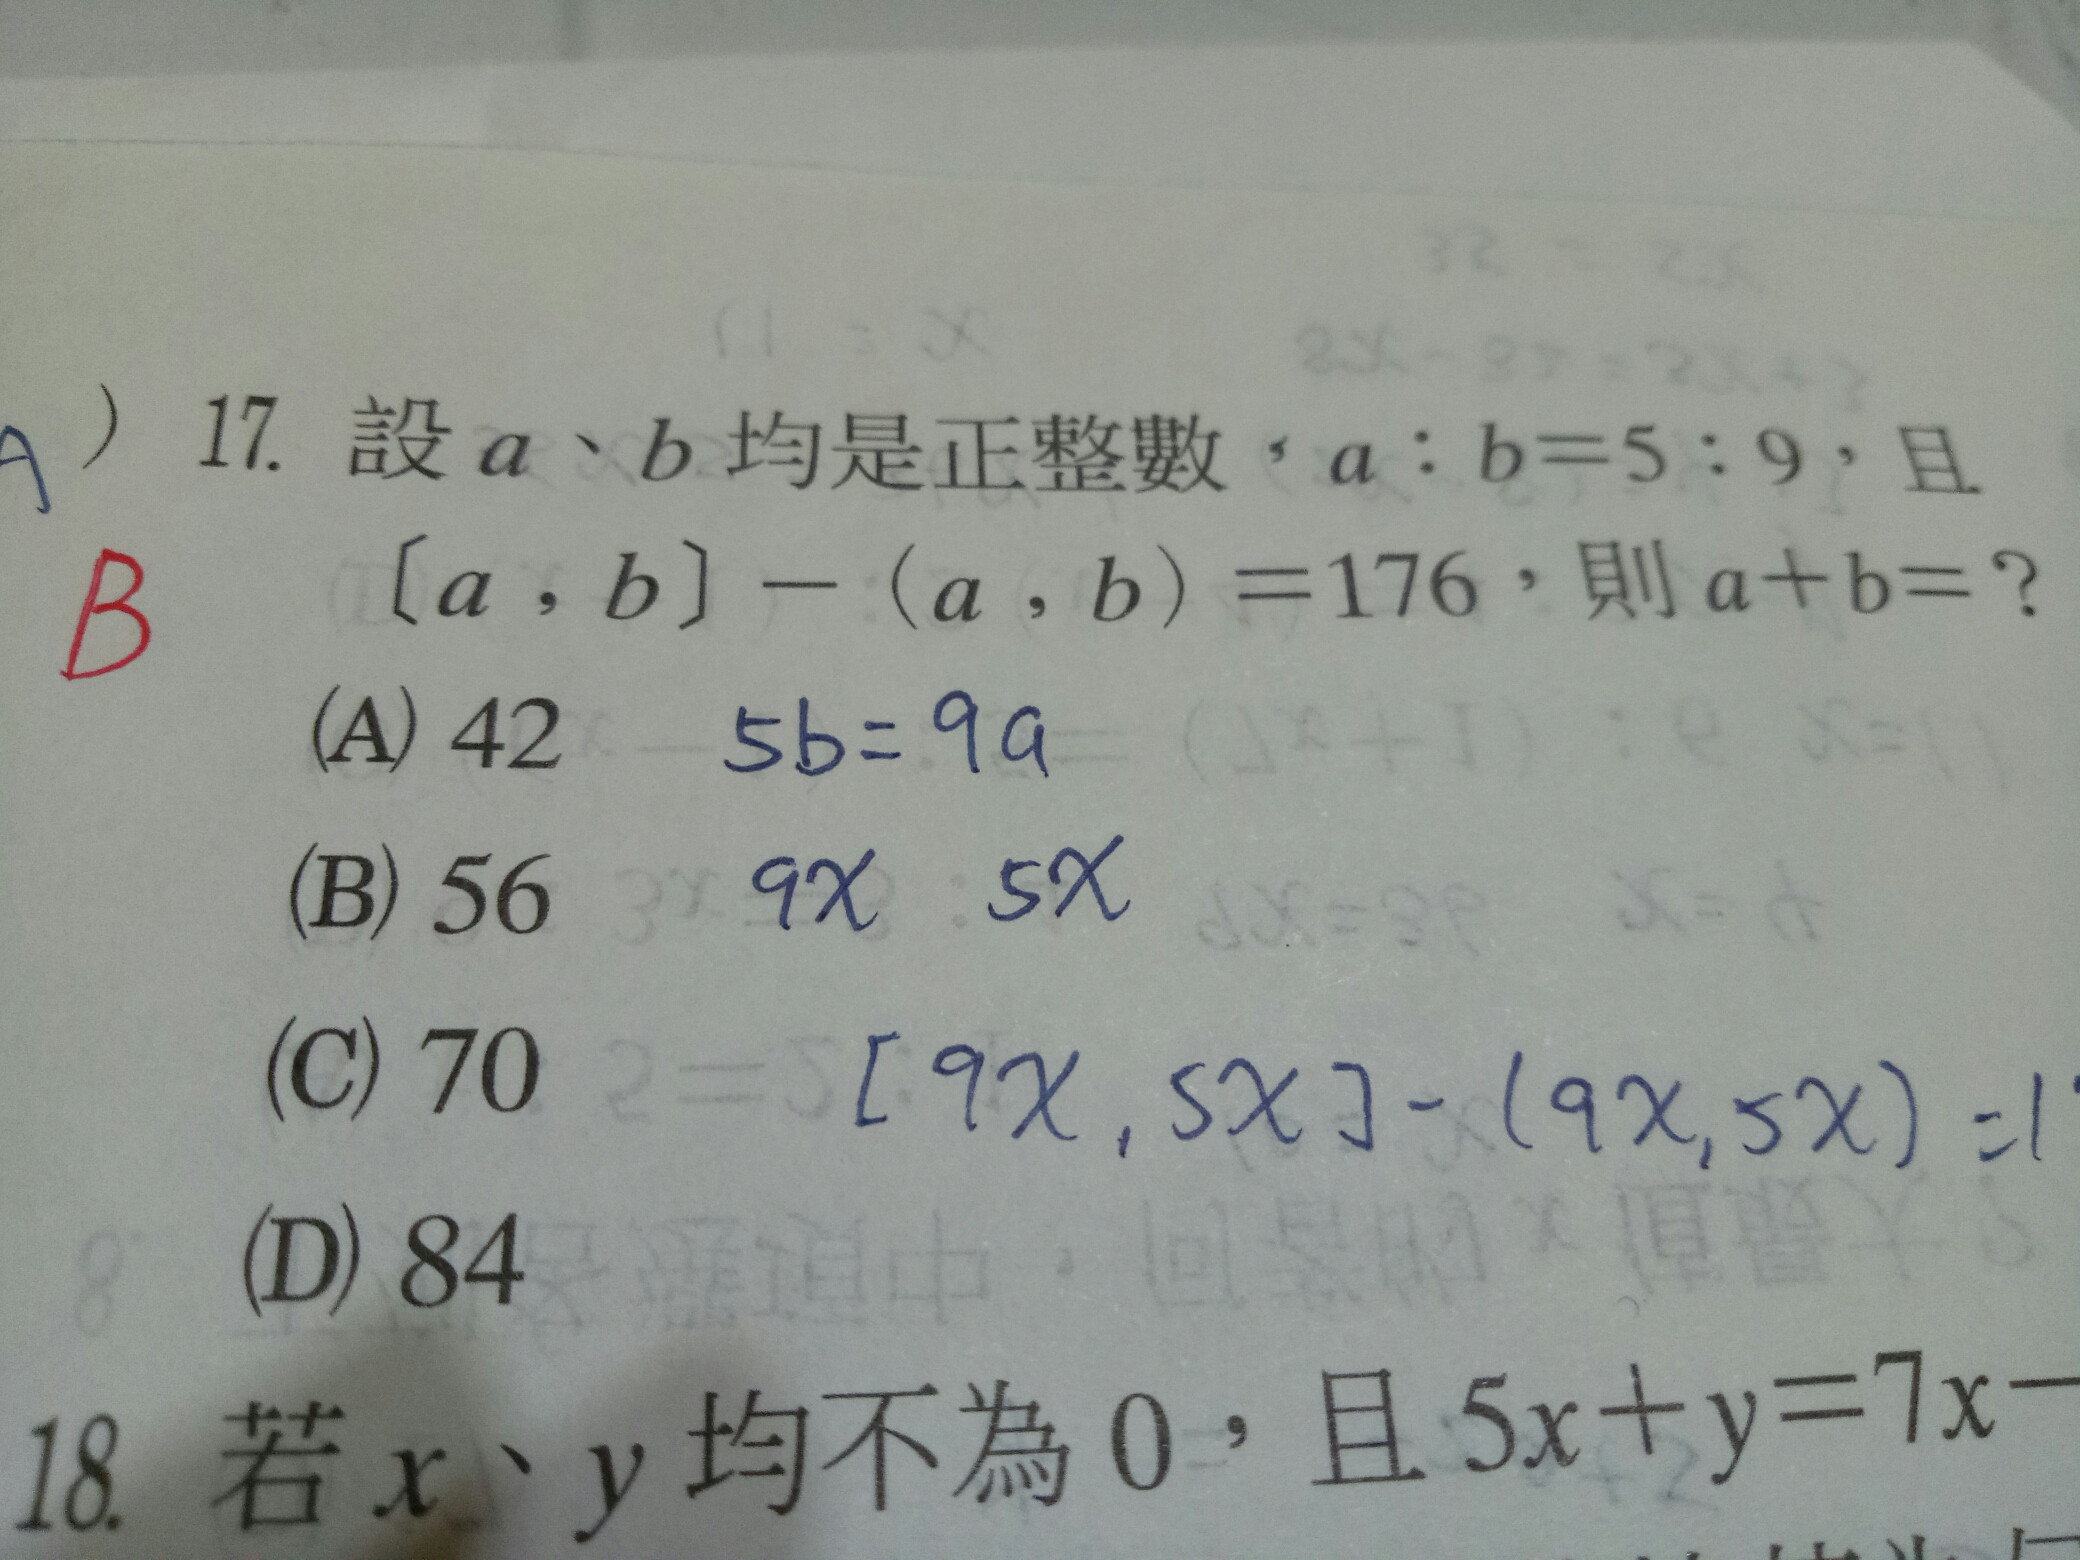 A ) 17. 設 a、b 均是正整數，a：b＝5：9，且
B 〔a，b〕－（a，b）＝176，則 a＋b＝？
(A) 42 5b=9a
(B) 56 9x 5x
(C) 70 [9x,5x]-(9x,5x)=1
(D) 84
18. 若 x、y 均不為 0，且 5x＋y＝7x－